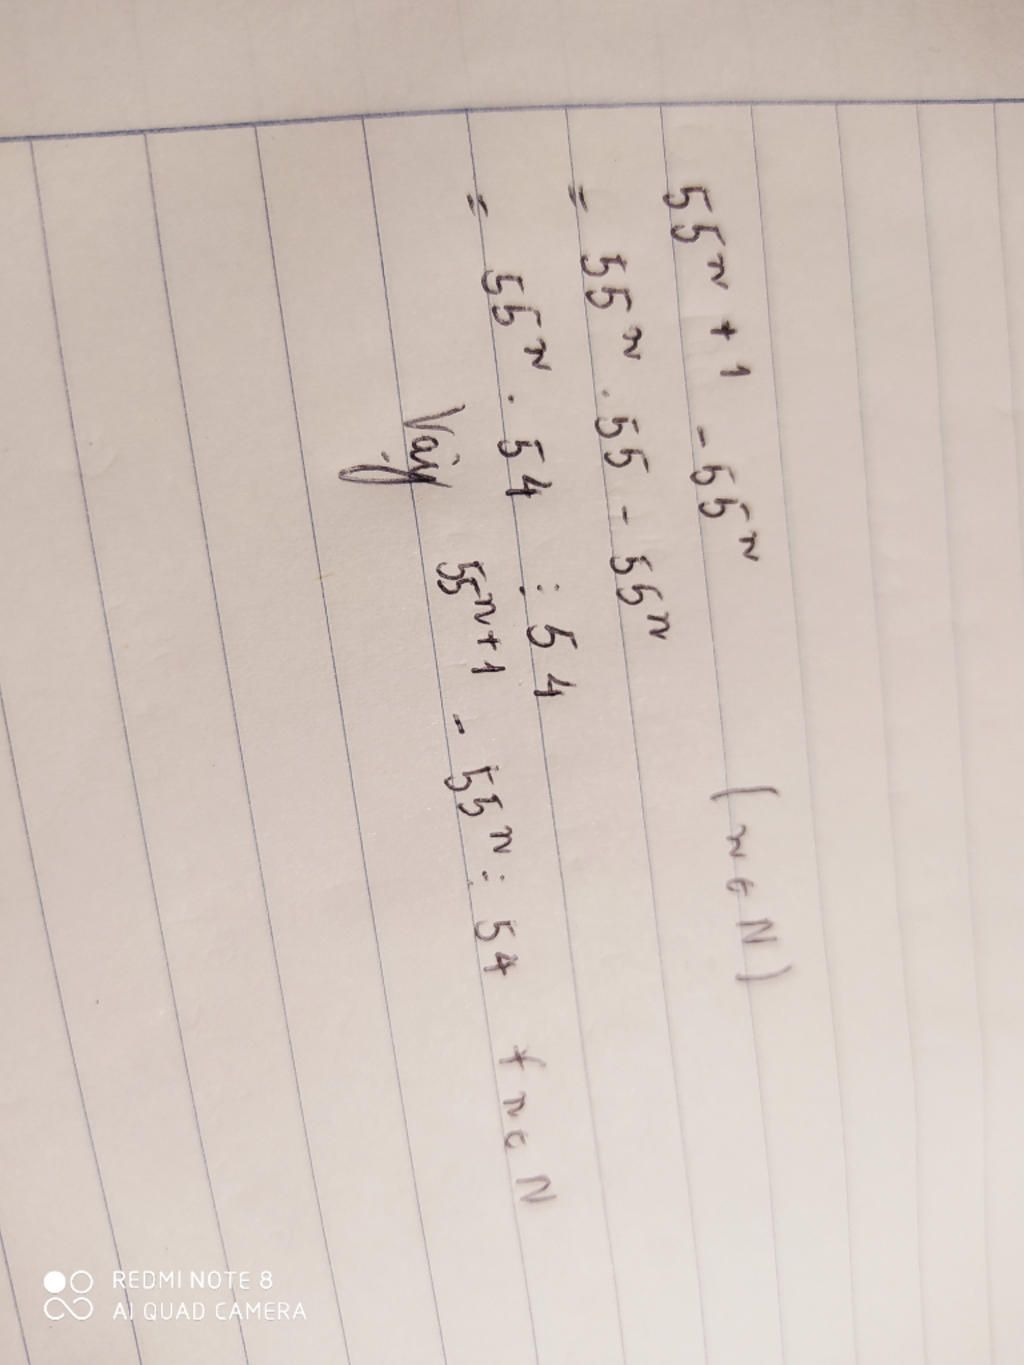 55ⁿ + 1 - 55ⁿ (n ∈ N)
= 55ⁿ . 55 - 55ⁿ
= 55ⁿ . 54 ⋮ 54
Vậy 55ⁿ⁺¹ - 55ⁿ ⋮ 54 + n ∈ N
REDMI NOTE 8
AI QUAD CAMERA